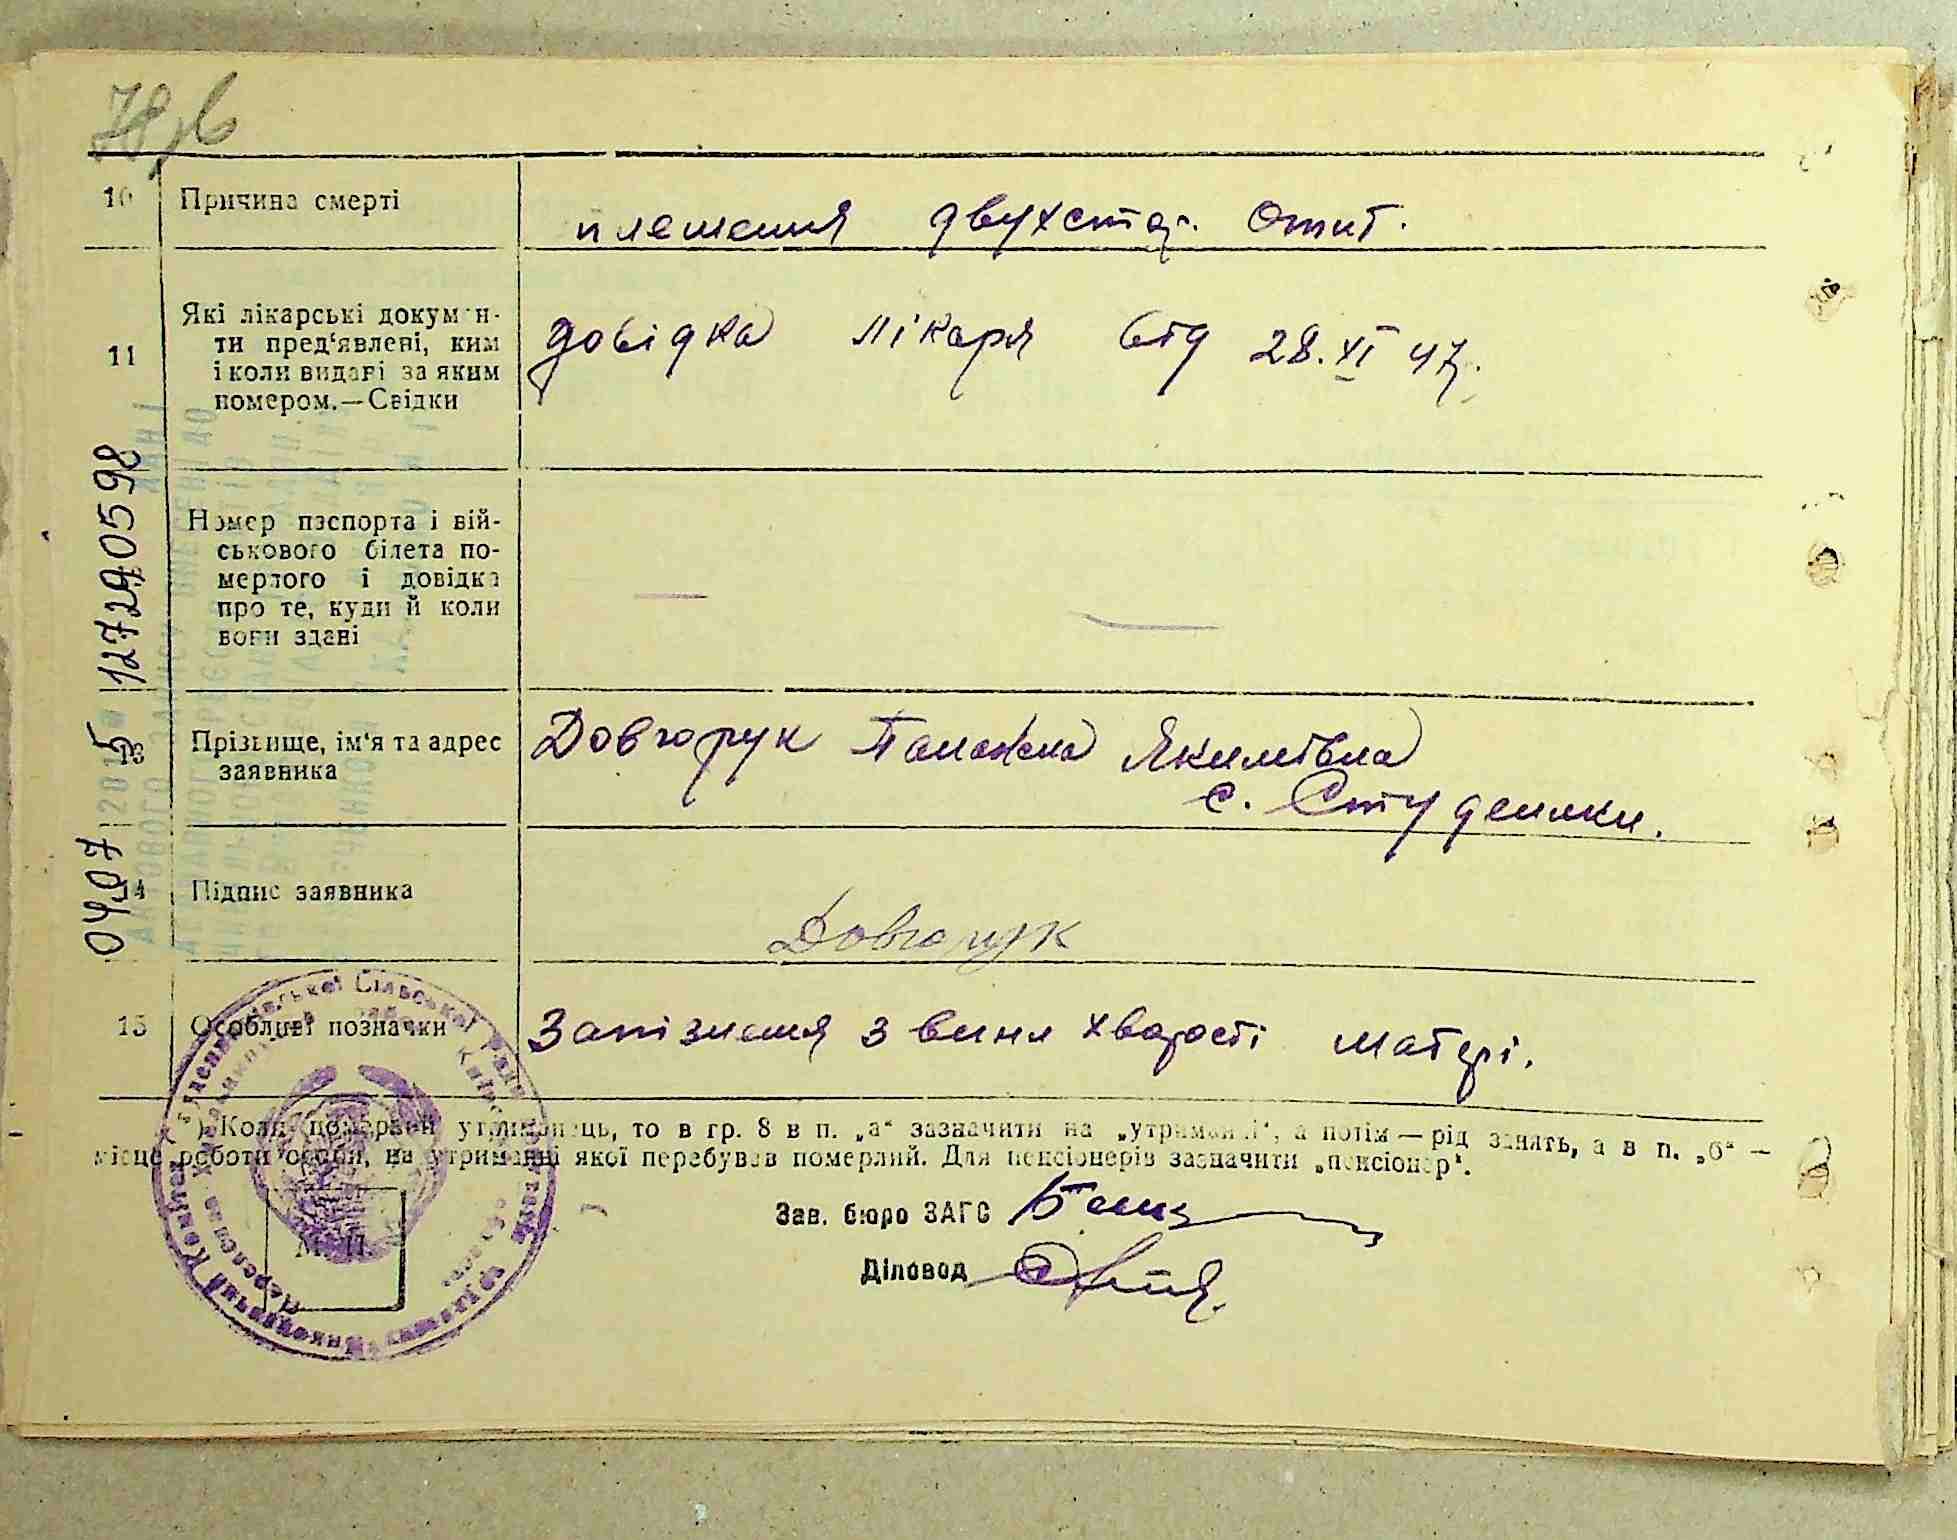 10 Причина смерті
двухстор. отит.
11 Які лікарські докумен-
ти пред‘явлені, ким
і коли видані за яким
номером.—Свідки
довідка лікаря від 28.XI 47р.
Номер паспорта і вій-
ськового білета по-
мерлого і довідка
про те, куди й коли
вони здані
— —
13 Прізвище, ім‘я та адрес
заявника
Довгорук Якимівна
с. Студеники.
14 Підпис заявника
Довгорук
15 Особливі позначки
Запізнення з вини хворості матері.
*) Коли померлий утриманець, то в гр. 8 в п. „а“ зазначити на „утриманні“, а потім — рід занять, а в п. „б“ —
місце роботи особи, на утриманні якої перебував померлий. Для пенсіонерів зазначити „пенсіонер“.
Зав. бюро ЗАГС
Діловод
М. П.
0407 127290598